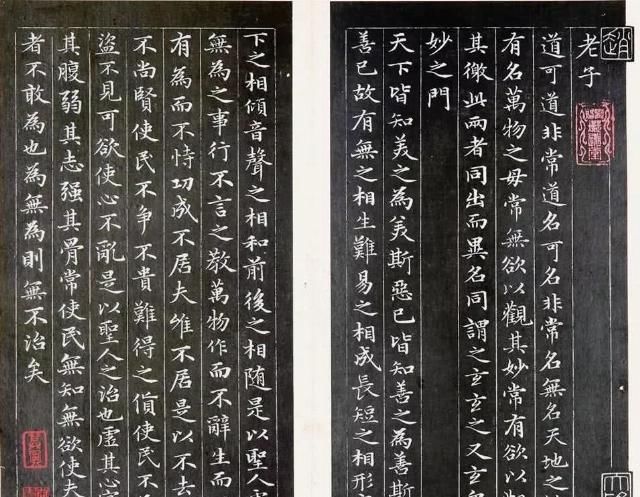 老子
道可道非常道名可名非常名無名天地之
有名萬物之母常無欲以觀其妙常有欲以
其徼此兩者同出而異名同謂之玄玄之又玄
妙之門
天下皆知美之為美斯惡已皆知善之為善斯
善已故有無之相生難易之相成長短之相形
下之相傾音聲之相和前後之相随是以聖人
無為之事行不言之教萬物作而不辭生而
有為而不恃功成不居夫惟不居是以不去
不尚賢使民不争不貴難得之貨使民不
盗不見可欲使心不亂是以聖人之治也虚其心
其腹弱其志强其骨常使民無知無欲使夫
者不敢為也為無為則無不治矣